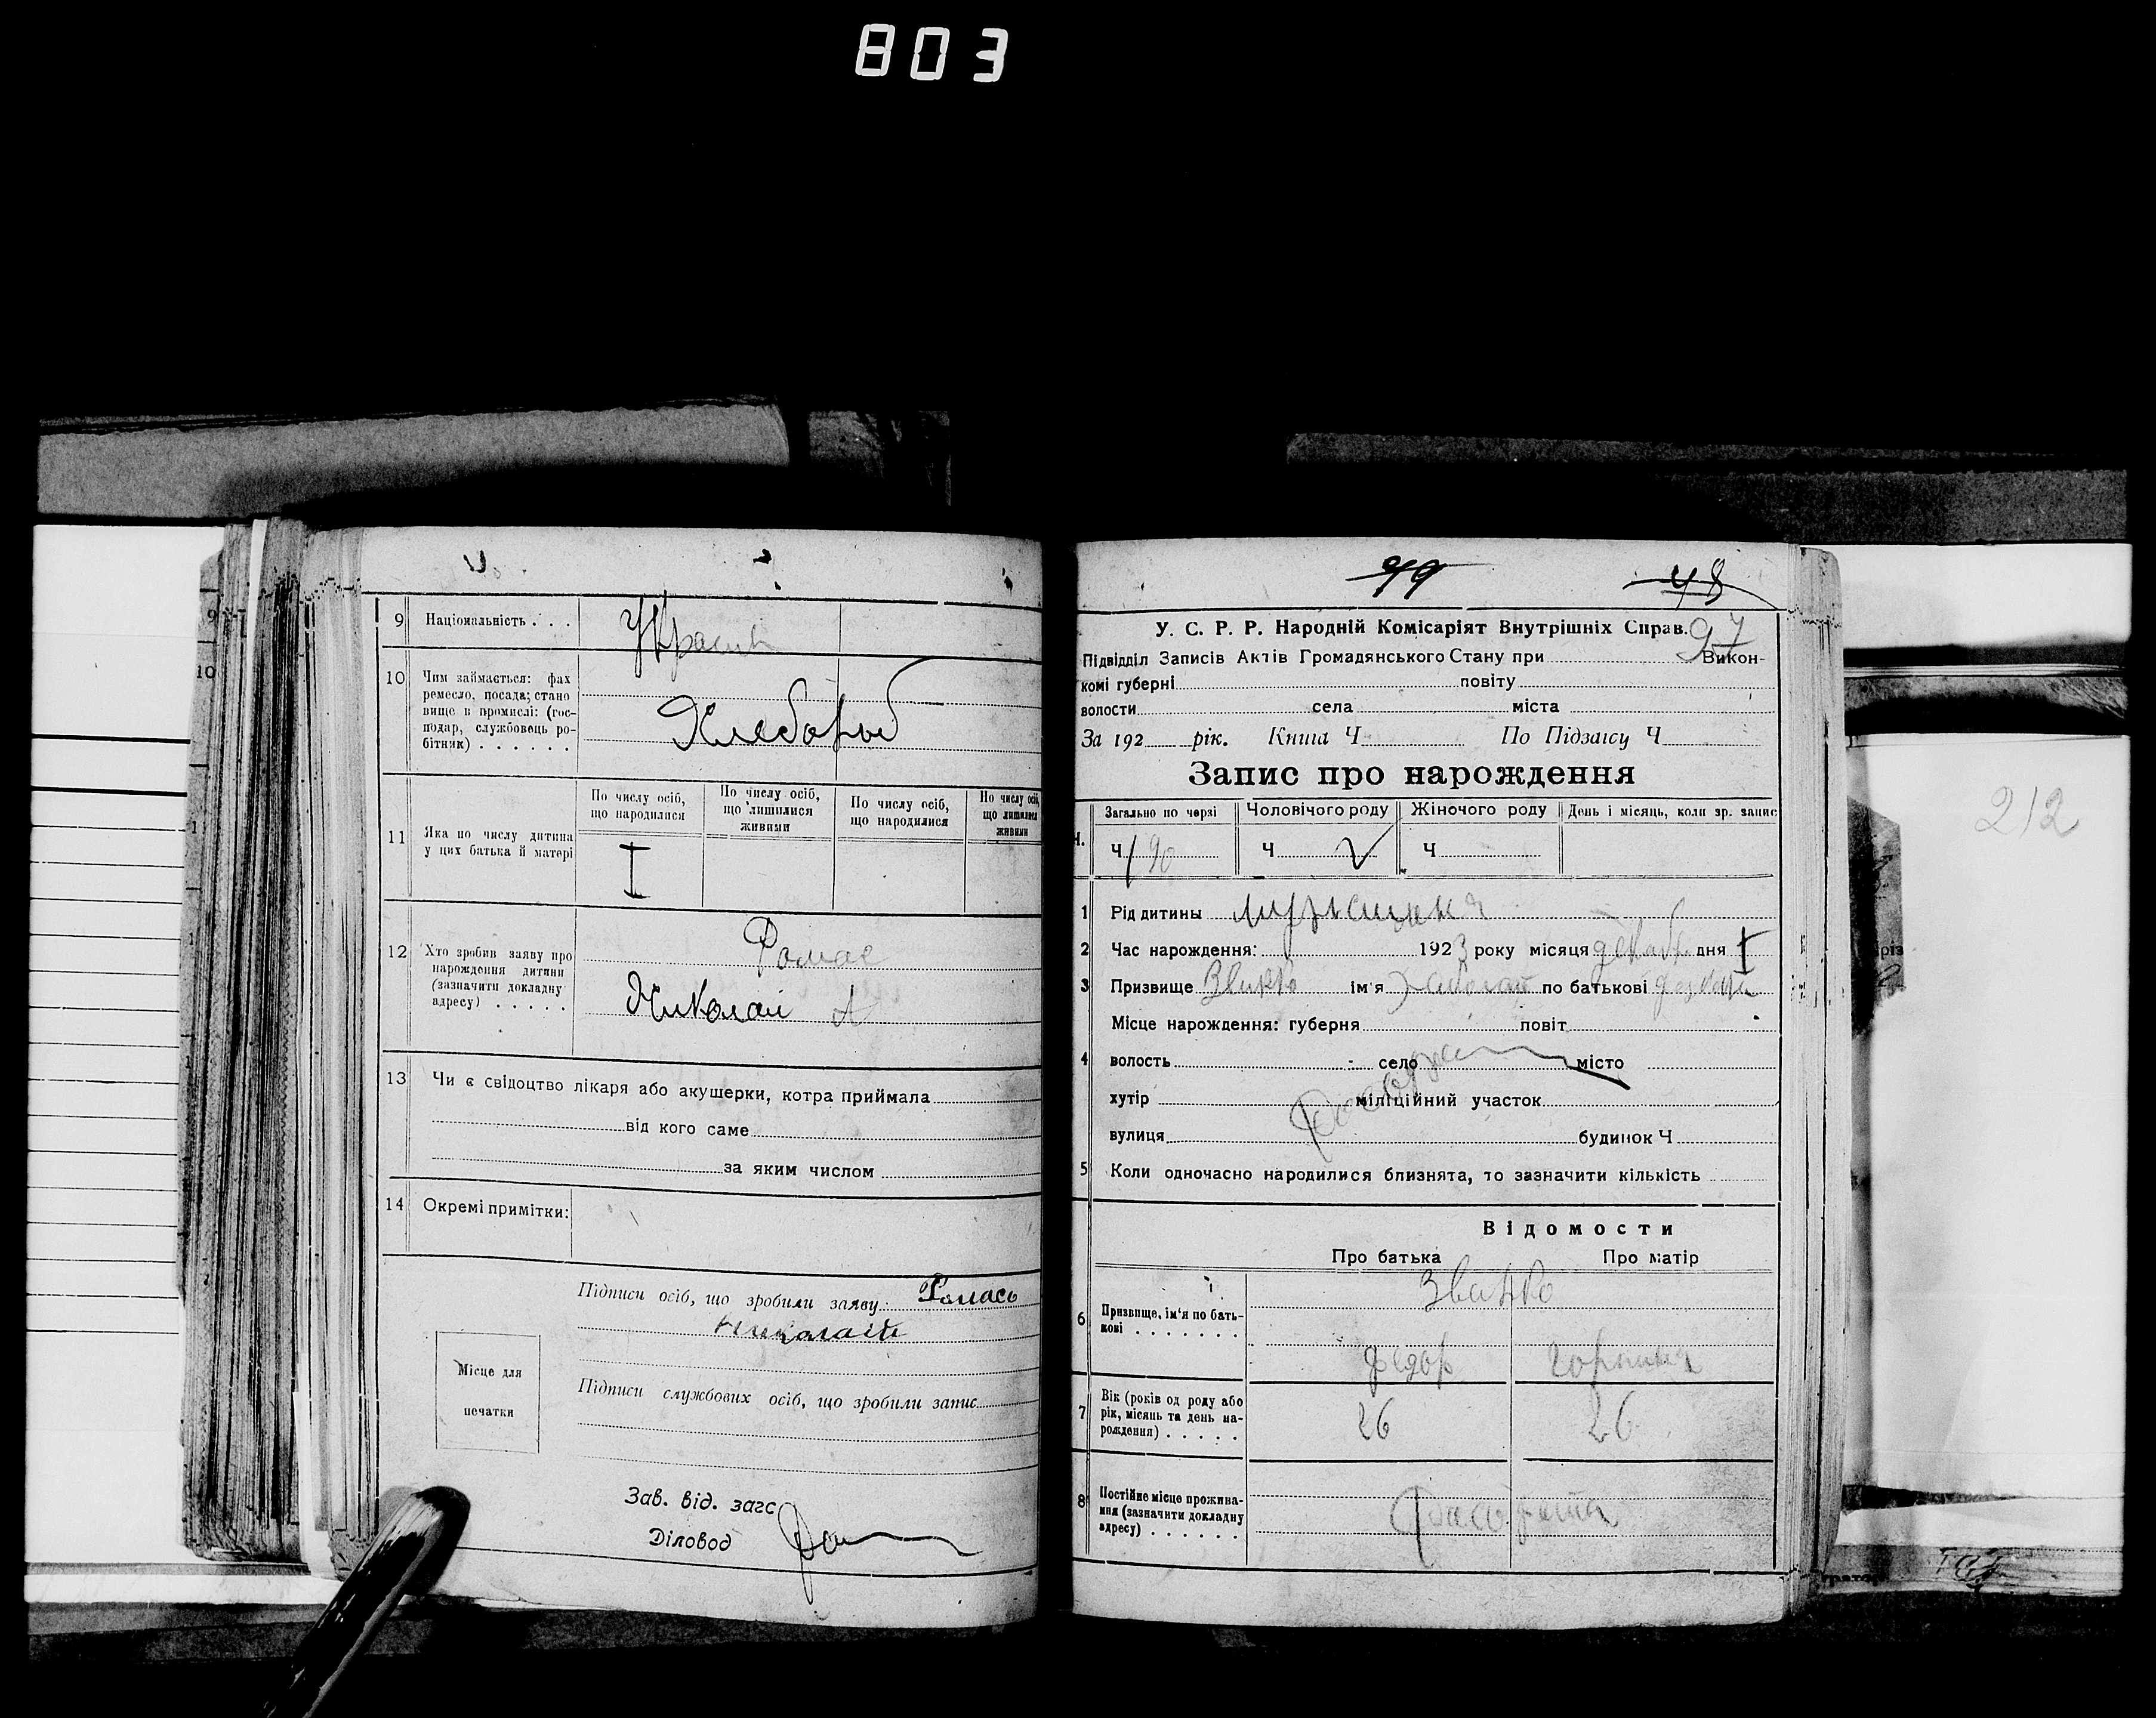 803
9 Національність . . .
Украин
10 Чим займається: фах
ремесло, посада; стано
вище в промислі: (гос-
подар, службовець ро-
бітник) . . . . . .
Хлебороб
11 Яка по числу дитина
у цих батька й матері
По числу осіб,
що народилися
По числу осіб,
що лишилися
живими
По числу осіб,
що народилися
По числу осіб,
що лишилися
живими
I
12 Хто зробив заяву про
нарождення дитини
(зазначити докладну
адресу) . . . . .
Ромас
Николай А
13 Чи є свідоцтво лікаря або акушерки, котра приймала
від кого саме
за яким числом
14 Окремі примітки:
Підписи осіб, що зробили заяву: Ромась
Николай
Підписи службових осіб, що зробили запис
Місце для
печатки
Зав. від. загс
Діловод
99 48
У. С. Р. Р. Народній Комісаріят Внутрішніх Справ. 97
Підвідділ Записів Актів Громадянського Стану при Викон-
комі губерні повіту
волости села міста
За 192 рік. Книга Ч. По Підзапису Ч.
Запис про нарождення
Загально по черзі Чоловічого роду Жіночого роду День і місяць, коли зр. запис
Н. Ч 190 Ч V Ч
1 Рід дитини
2 Час нарождення: 1923 року місяця декабр дня I
3 Призвище ім'я по батькові
Місце нарождення: губерня повіт
4 волость село місто
хутір міліційний участок
вулиця будинок Ч
5 Коли одночасно народилися близнята, то зазначити кількість
Відомости
Про батька Про матір
6 Призвище, ім'я по бать-
кові . . . . . . .
Федор Горпина
7 Вік (років од роду або
рік, місяць та день на-
рождення) . . . . .
26 26
8 Постійне місце прожива-
ння (зазначити докладну
адресу) . . . . . .
212